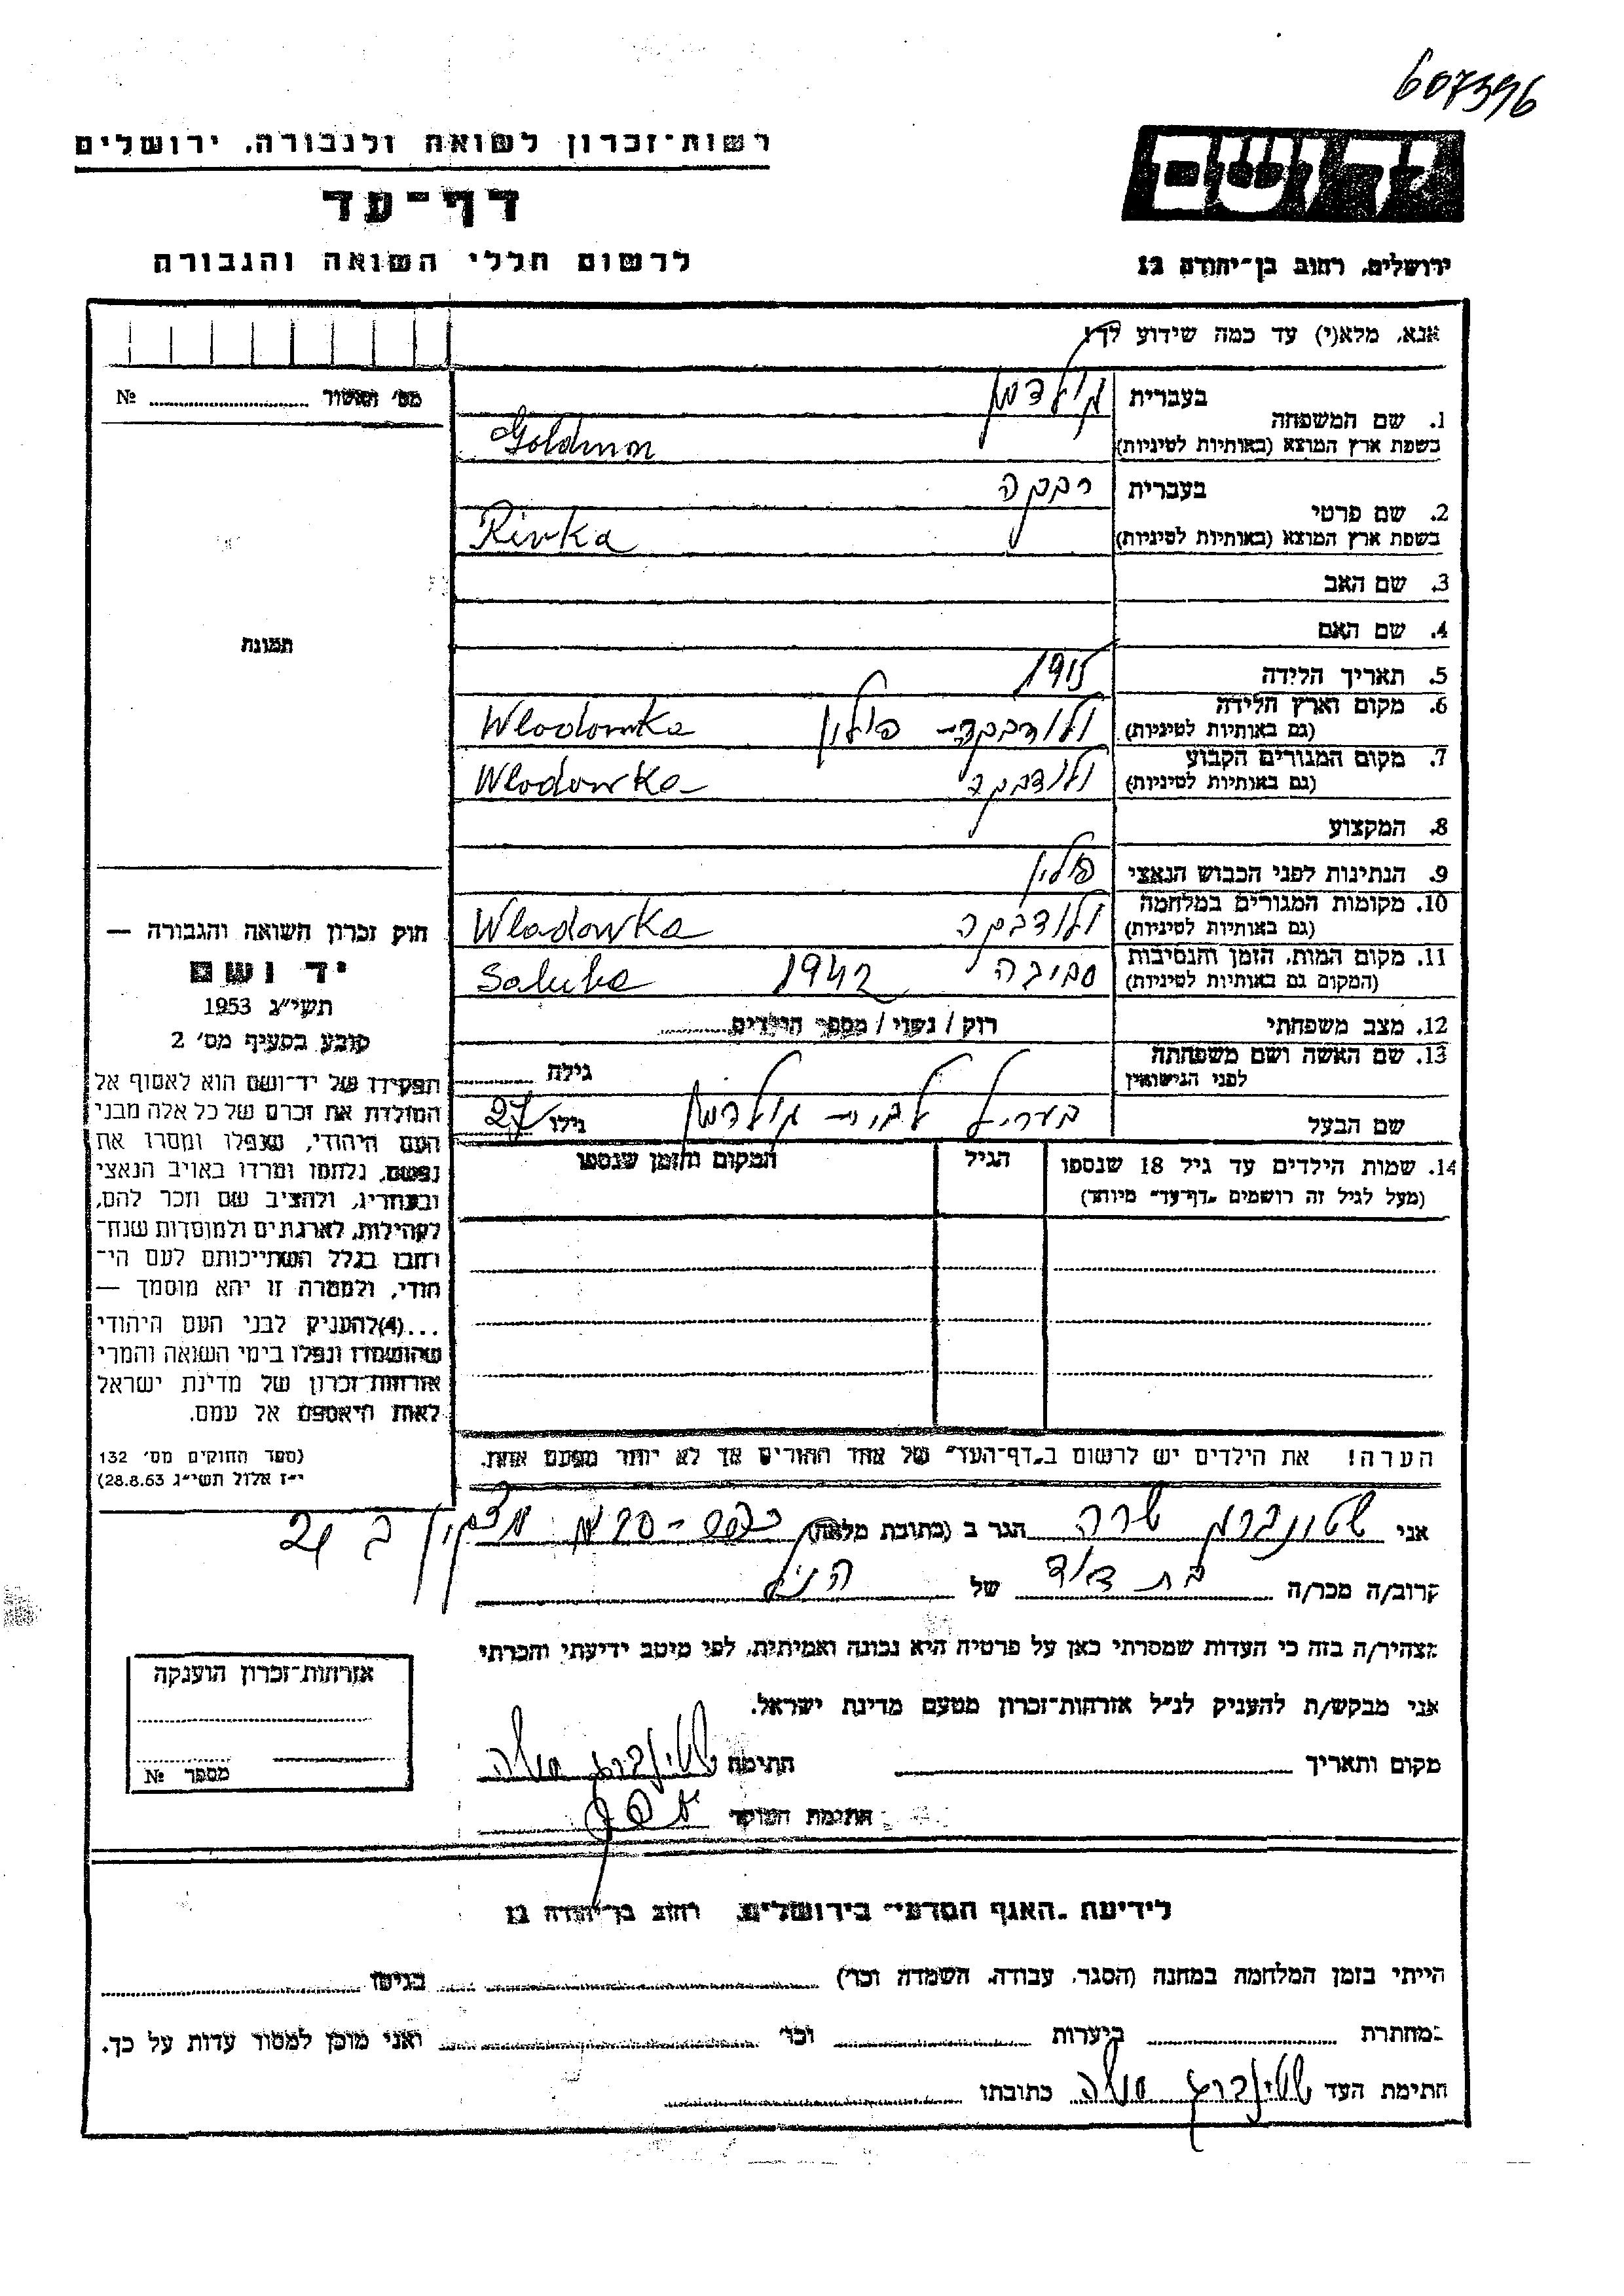 607396
רשות־זכרון לשואה ולגבורה, ירושלים
יד ושם
דף־עד
לרשום חללי השואה והגבורה
ירושלים, רחוב בן־יהודה 12
אנא, מלא(י) עד כמה שידוע לך!
מס' ואשור ........ №
1. שם המשפחה
בעברית גולדמן
בשפת ארץ המוצא (באותיות לטיניות) Goldman
2. שם פרטי
בעברית רבקה
בשפת ארץ המוצא (באותיות לטיניות) Rivka
3. שם האב
4. שם האם
תמונה
5. תאריך הלידה 1915
6. מקום וארץ הלידה ולודבקה - פולין Wlodowka
(גם באותיות לטיניות)
7. מקום המגורים הקבוע ולודבקה Wlodowka
(גם באותיות לטיניות)
8. המקצוע
9. הנתינות לפני הכבוש הנאצי פולין
10. מקומות המגורים במלחמה ולודבקה Wlodowka
(גם באותיות לטיניות)
11. מקום המות, הזמן והנסיבות 1942
(המקום גם באותיות לטיניות)
12. מצב משפחתי רוק / נשוי / מספר הילדים ........
13. שם האשה ושם משפחתה גילה ........
לפני הנישואין
שם הבעל גולדמן גילו 27
14. שמות הילדים עד גיל 18 שנספו הגיל המקום והזמן שנספו
(מעל לגיל זה רושמים "דף־עד" מיוחד)
הערה! את הילדים יש לרשום ב"דף־העד" של אחד ההורים אך לא יותר מפעם אחת.
חוק זכרון השואה והגבורה —
יד ושם
תשי"ג 1953
קובע בסעיף מס' 2
תפקידו של יד־ושם הוא לאסוף אל
המולדת את זכרם של כל אלה מבני
העם היהודי, שנפלו ומסרו את
נפשם, נלחמו ומרדו באויב הנאצי
ובעוזריו, ולהציב שם וזכר להם,
לקהילות, לארגונים ולמוסדות שנח־
רבו בגלל השתייכותם לעם הי־
הודי, ולמטרה זו יהא מוסמך —
...(4)להעניק לבני העם היהודי
שהושמדו ונפלו בימי השואה והמרי
אזרחות־זכרון של מדינת ישראל
לאות היאספם אל עמם.
(ספר החוקים מס' 132
י"ז אלול תשי"ג 28.8.53)
אני שטונברג שרה הגר ב (כתובת מלאה)
קרוב/ה מכר/ה בת דוד של הנ"ל
מצהיר/ה בזה כי העדות שמסרתי כאן על פרטיה היא נכונה ואמיתית, לפי מיטב ידיעתי והכרתי
אני מבקש/ת להעניק לנ"ל אזרחות־זכרון מטעם מדינת ישראל.
מקום ותאריך ........ חתימה
חתימת הפוקד
אזרחות־זכרון הוענקה
מספר №
לידיעת "האגף המדעי" בירושלים, רחוב בן־יהודה 12
הייתי בזמן המלחמה במחנה (הסגר, עבודה, השמדה וכו') ........ בגיטו ........
במחתרת ........ ביערות ........ וכו' ........ ואני מוכן למסור עדות על כך.
חתימת העד כתובתו ........